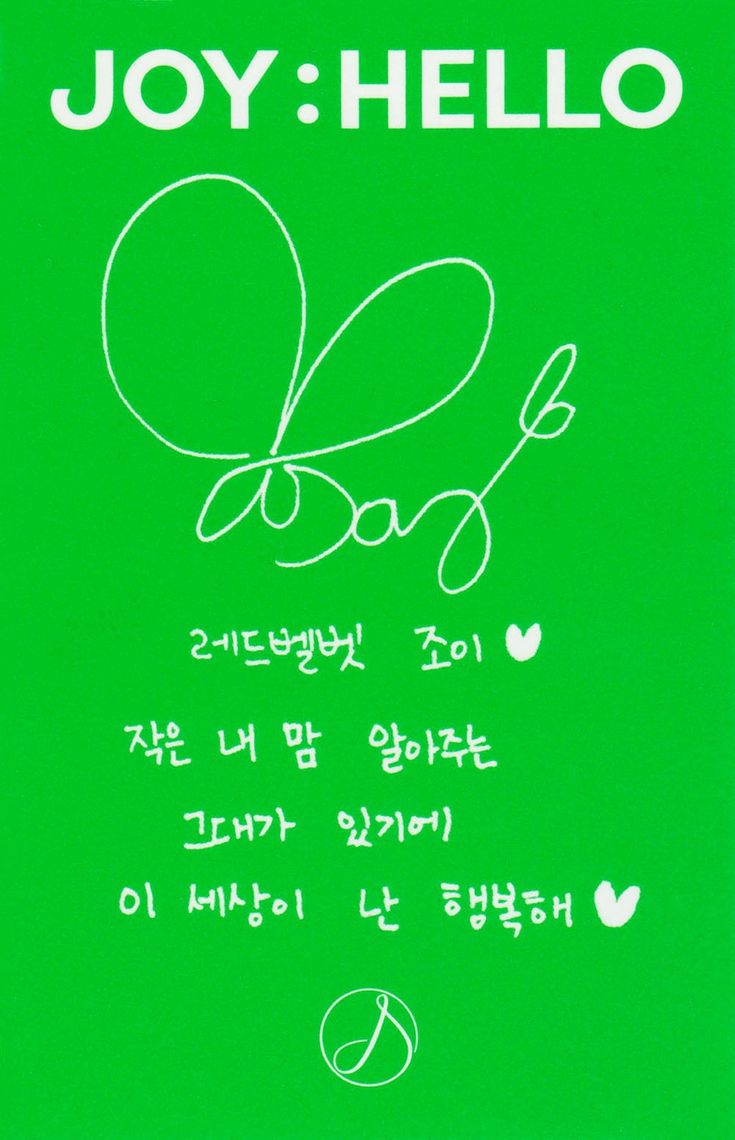 JOY:HELLO
레드벨벳 조이 ♥
작은 내 맘 알아주는
그대가 있기에
이 세상이 난 행복해 ♥